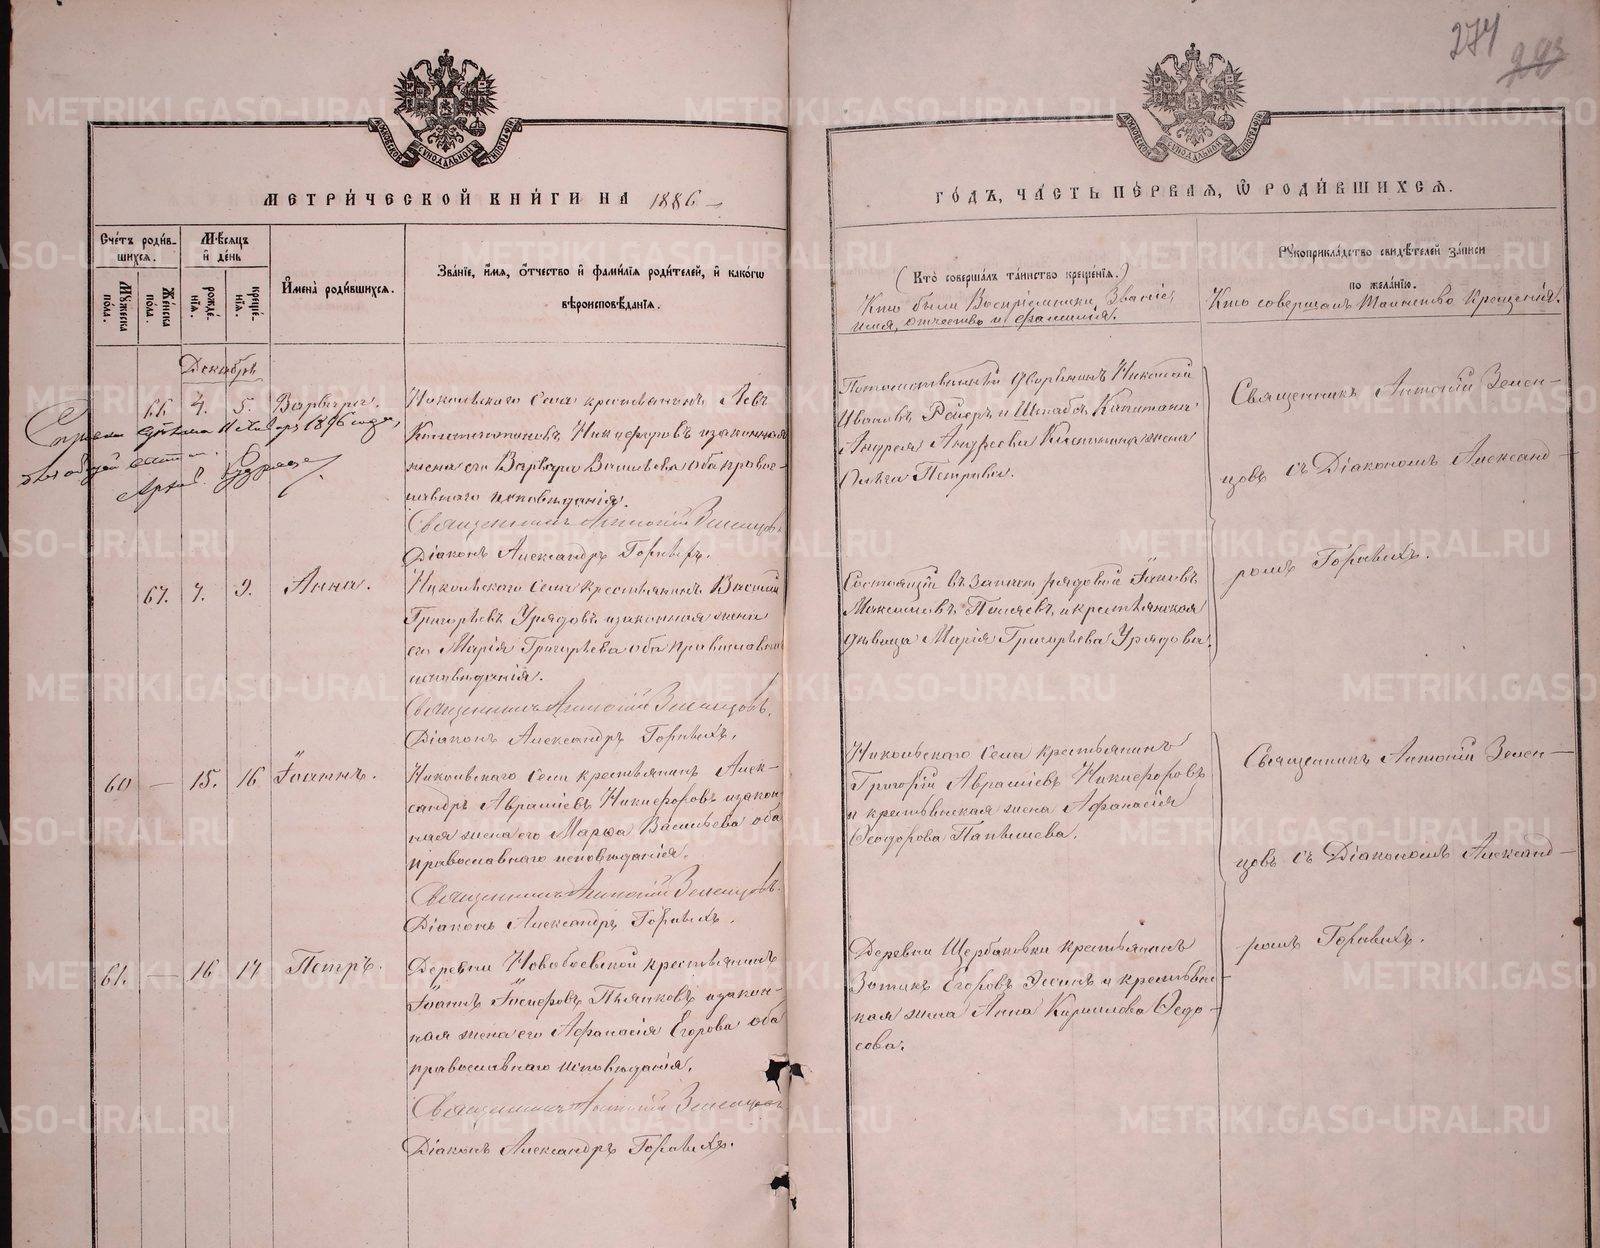 274
МЕТРИ́ЧЕСКОЙ КНИ́ГИ НА 1886
ГО́ДЪ, ЧА́СТЬ ПЕ́РВАЯ, Ѡ РОДИ́ВШИХСЯ.
Сче́тъ роди́в-
шихся.
Му́жеска пола.
Же́нска пола.
Мѣ́сяцъ и де́нь
рожде́-
нїя.
креще́-
нїя.
Имена̀ роди́вшихся.
Зва́нїе, и́мя, о́тчество и фами́лїя роди́телей, и како́гѡ
вѣроисповѣ́данїя.
(Кто̀ соверша́лъ та́инство креще́нїя.)
Кто были Воспріемники, Званіе,
имя, отчество и фамилія.
Рꙋкоприкла́дство свидѣ́телей за́писи
по жела́нїю.
Кто совершалъ Таинство Крещенія.
Декабрь
66 4. 5. Варвара.
Никольскаго села крестьянинъ Левъ
Константиновъ Никифоровъ и законная
жена его Варвара Васильева оба правос-
лавнаго исповѣданія.
Священникъ Антоній Зеленцовъ.
Діаконъ Александръ Горныхъ.
Потомственный дворянинъ Николай
Ивановъ и Штабсъ Капитана
Андрея Андреева жена
Ольга Петровна.
Священникъ Антоній Зелен-
цовъ съ Діакономъ Александ-
ромъ
1896 года,
67. 7. 9. Анна.
Никольскаго села крестьянинъ Василій
Григорьевъ Урядовъ и законная жена
его Марія Григорьева оба православнаго
исповѣданія.
Священникъ Антоній Зеленцовъ.
Діаконъ Александръ
Состоящій въ запасѣ рядовой Іаковъ
Максимовъ и крестьянская
дѣвица Марія Григорьева Урядова.
60 — 15. 16 Іоаннъ.
Никольскаго села крестьянинъ Алек-
сандръ Авраміевъ Никифоровъ и закон-
ная жена его Марѳа Васильева оба
православнаго исповѣданія.
Священникъ Антоній Зеленцовъ.
Діаконъ Александръ
Никольскаго села крестьянинъ
Григорій Авраміевъ Никифоровъ
и крестьянская жена Афанасія
Ѳеодорова
Священникъ Антоній Зелен-
цовъ съ Діакономъ Александ-
ромъ
61. — 16 17 Петръ.
Деревни крестьянинъ
Іоаннъ Іосифовъ Пьянковъ и закон-
ная жена его Афанасія Егорова оба
православнаго исповѣданія.
Священникъ Антоній Зеленцовъ
Діаконъ Александръ
Деревни Щербаковки крестьянинъ
Зотикъ Егоровъ и крестьянс-
кая жена Анна Кирилова Ѳедо-
сова.
METRIKI.GASO-URAL.RU